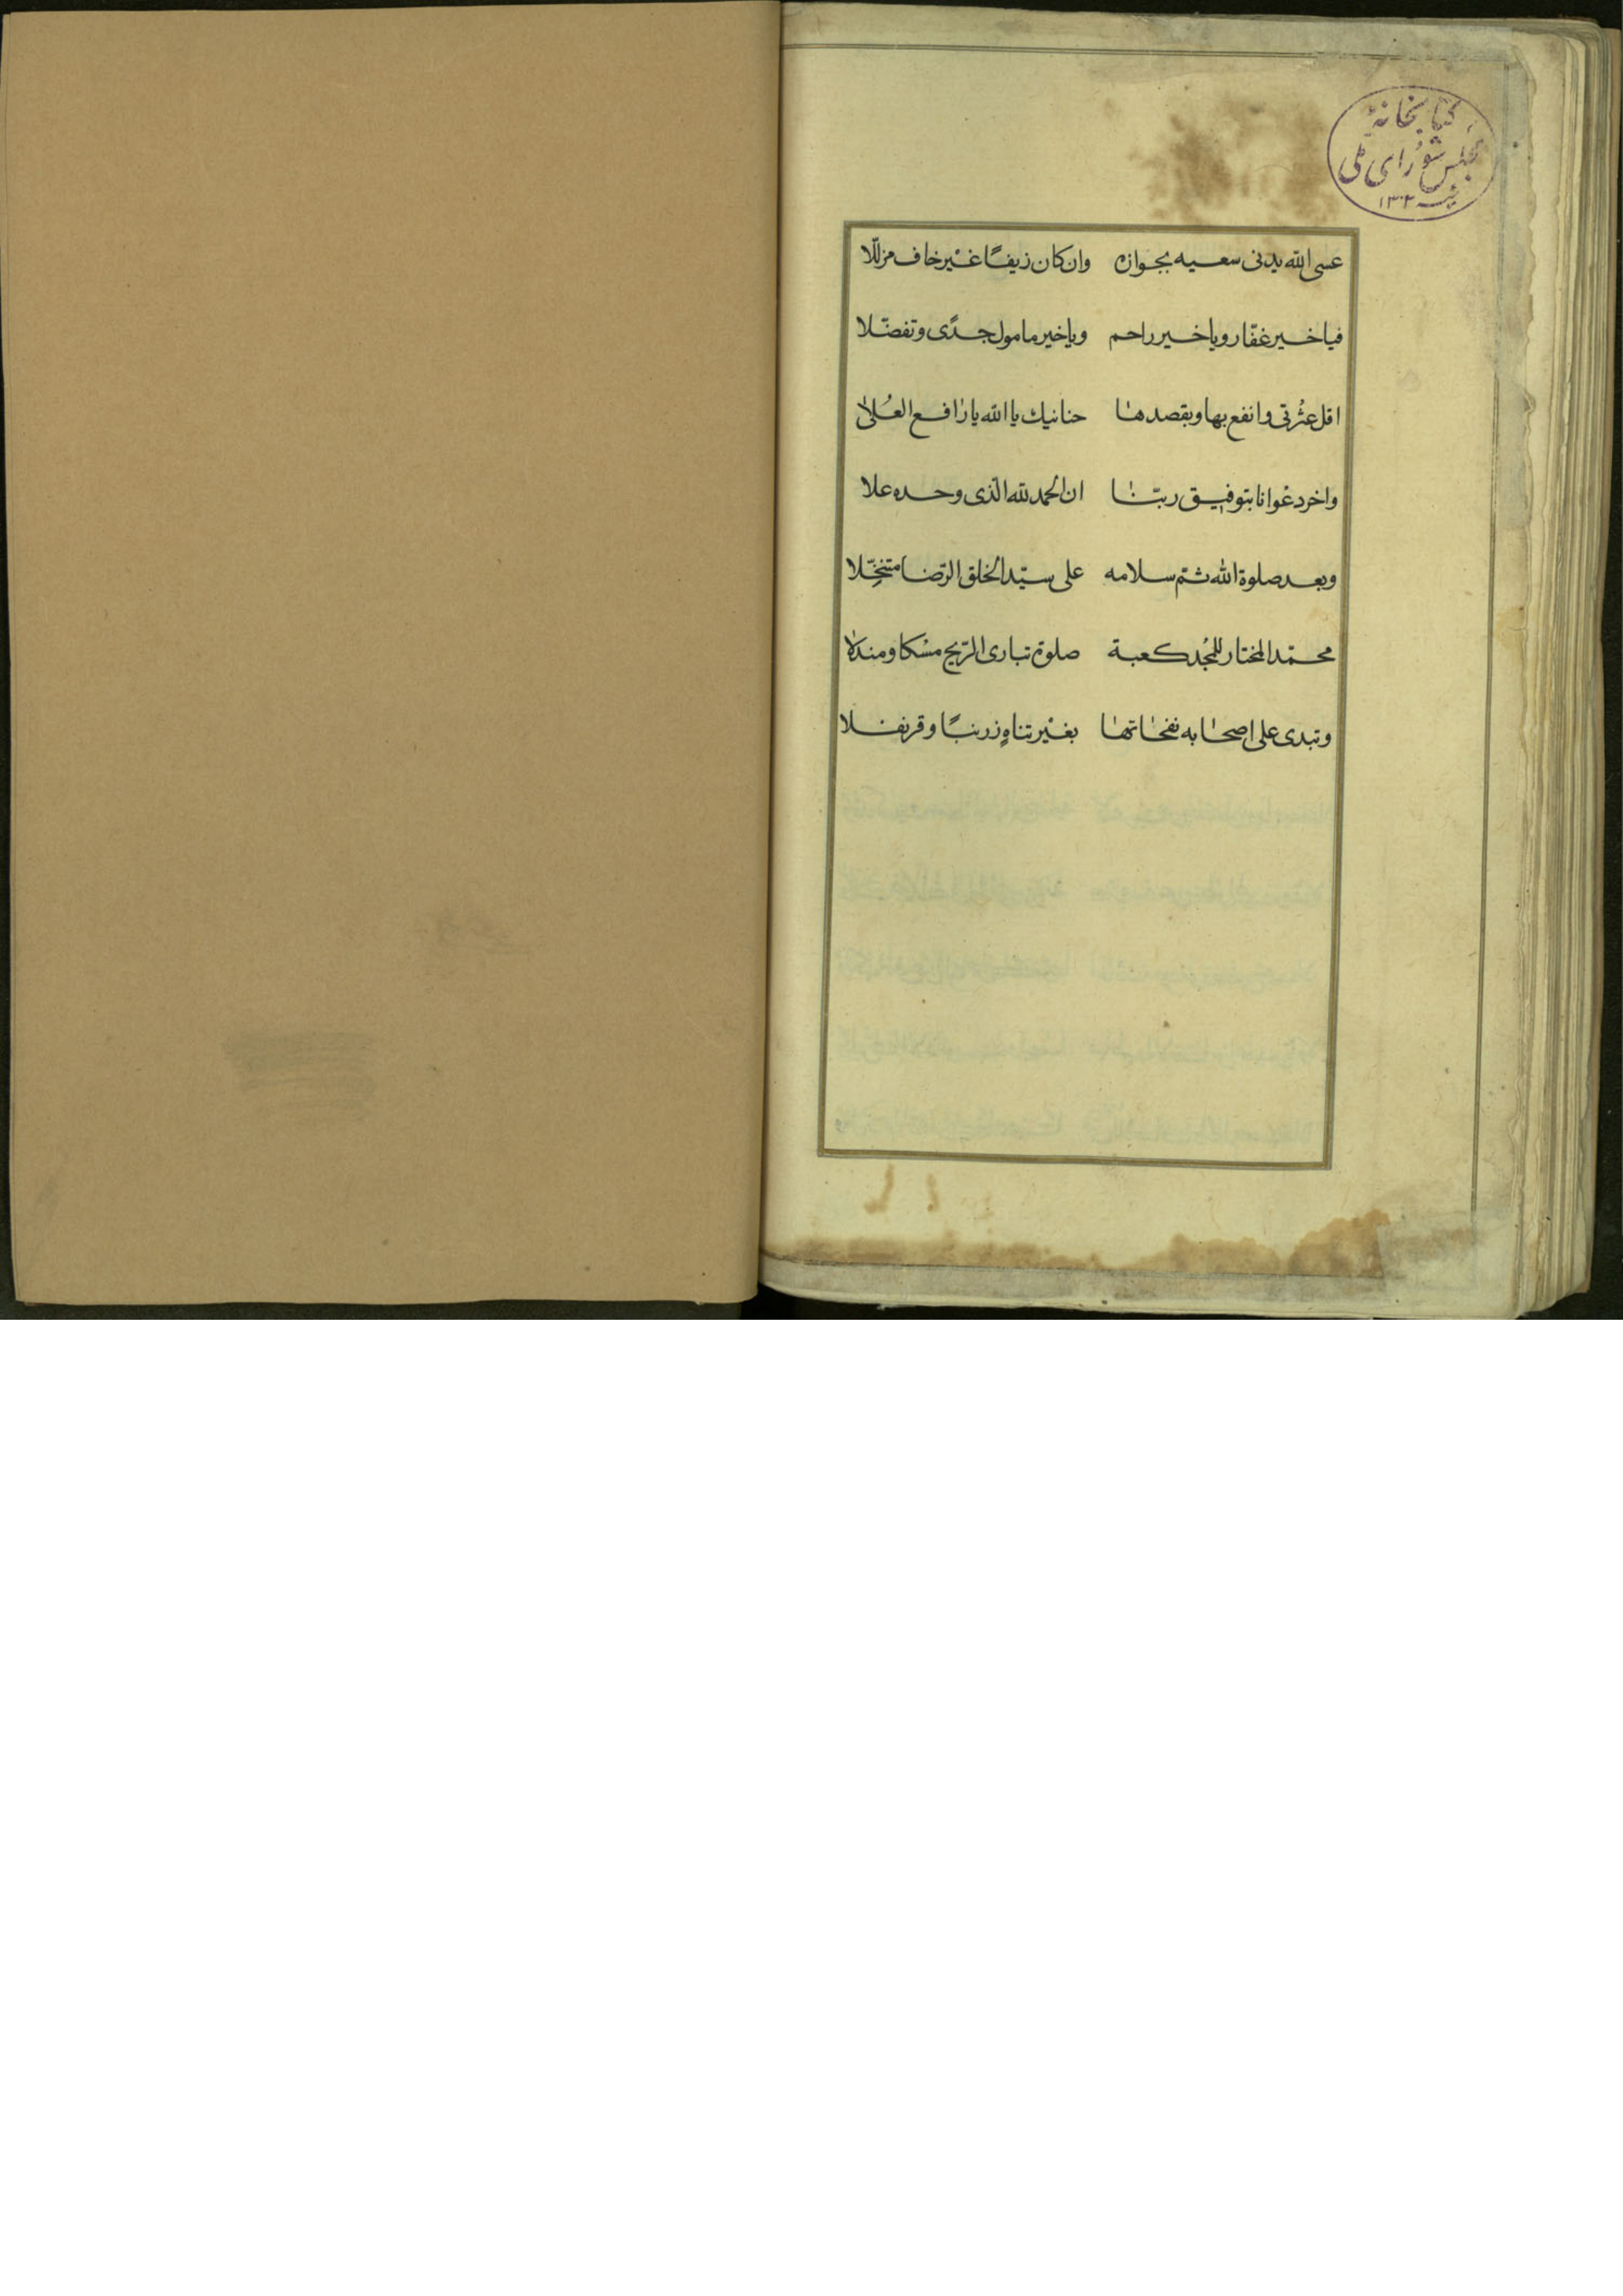 كتابخانهٔ
مجلس شورای ملی
سنه ۱۳۰۲
عسى الله يدنى سعيه بجوازه وان كان زيفًا غير خاف مزللا
فياخير غفّار وياخير راحم وياخير مامول جدًى وتفضّلا
اقل عثرتى وانفع بها وبقصدها حنانيك يا الله يا رافع العُلى
واخر دعوانا بتوفيق ربّنا ان الحمد لله الّذى وحده علا
وبعد صلوة الله ثمّ سلامه على سيّد الخلق الرّضا متنخّلا
محمّد المختار للمجد كعبة صلوة تبارى الرّيح مسْكا ومندلا
وتبدى على اصحابه نفحاتها بغيْر تناهٍ زرنبًا وقرنفلا